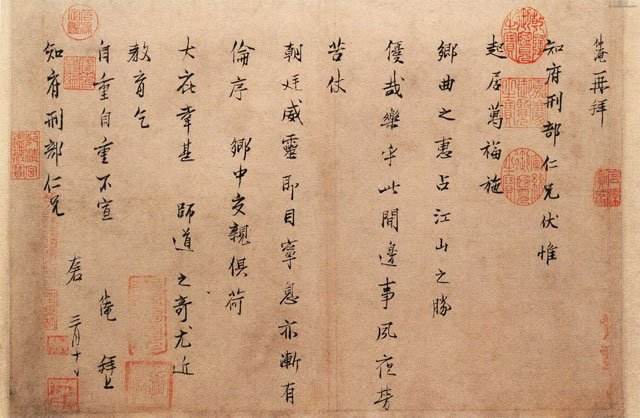 仲淹再拜
知府刑部仁兄伏惟
起居萬福施
鄉曲之惠占江山之勝
優哉樂乎此間邊事夙夜勞
苦仗
朝廷威靈即目寧息亦漸有
倫序 鄉中交親俱荷
大庇幸甚 師道之奇尤近
教育乞
自重自重不宣 仲淹 拜上
知府刑部仁兄 三月十日